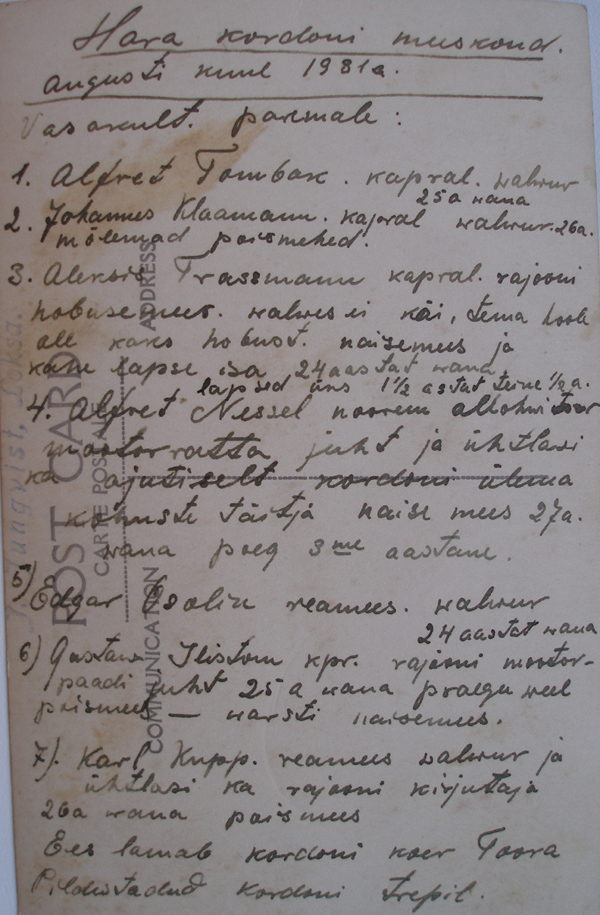 Hara kordoni meeskond.
augusti kuul 1931a.
Vasakult. paremale:
1. Alfred Tombak. kapral. walwur
25a wana
2. Johannes Klaamann. kapral walwur. 26a.
mõlemad poismehed.
3. Aleksei Trassmann kapral. rajooni
hobusemees. walwes ei käi, tema hoole
all kaks hobust. naisemees ja
kahe lapse isa 24 aastat wana
lapsed üks 1½ astat teine ½a.
4. Alfred Nessel noorem allohwitser
mootorratta juht ja ühtlasi
ka ajutiselt kordoni ülema
kohuste täitja naise mees 27a.
wana poeg 3me aastane.
5) Edgar reamees. walwur
24 aastat wana
6) Gustaw Ilistom kpr. rajooni mootor-
paadi juht 25 a wana praegu weel
poismees — warsti naisemees.
7). Karl Kupp. reamees walwur ja
ühtlasi ka rajooni kirjutaja
26a wana poismees
Ees lamab kordoni koer Toora
Pildistadud kordoni trepil.
POST CARD
CARTE POSTALE
ADDRESS
COMMUNICATION
Loksa.